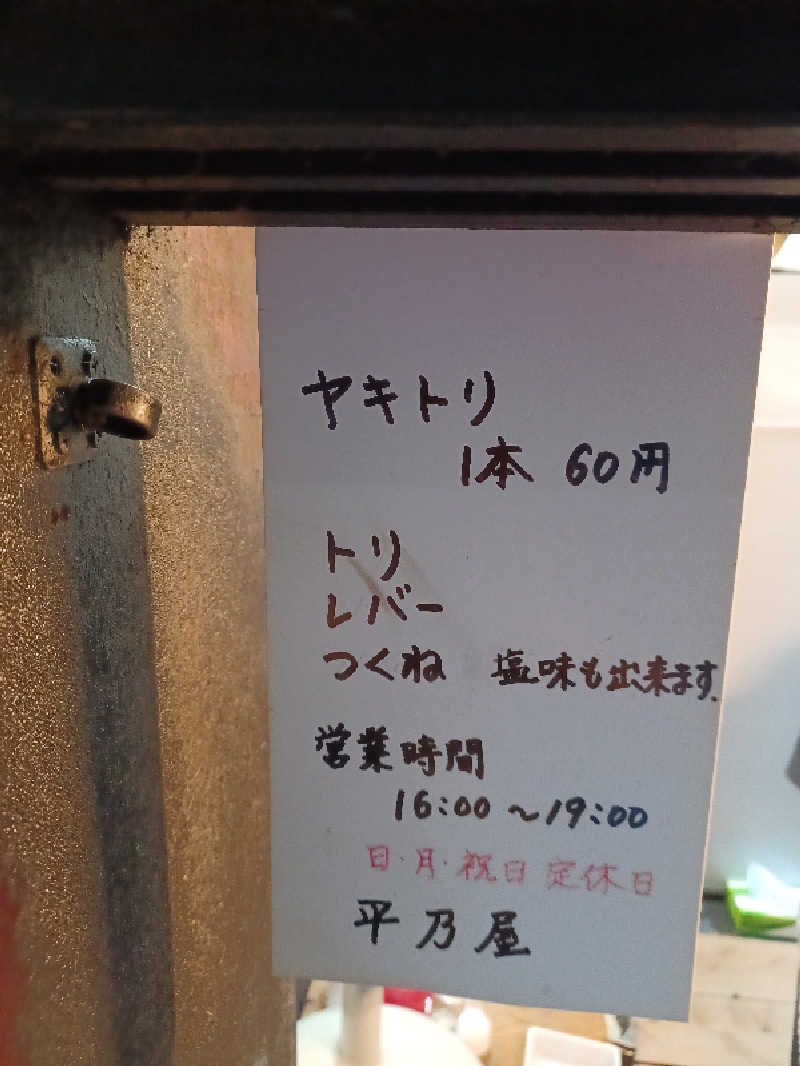 ヤキトリ
1本 60円
トリ
レバー
つくね 塩味も出来ます.
営業時間
16:00~19:00
日・月・祝日定休日
平乃屋